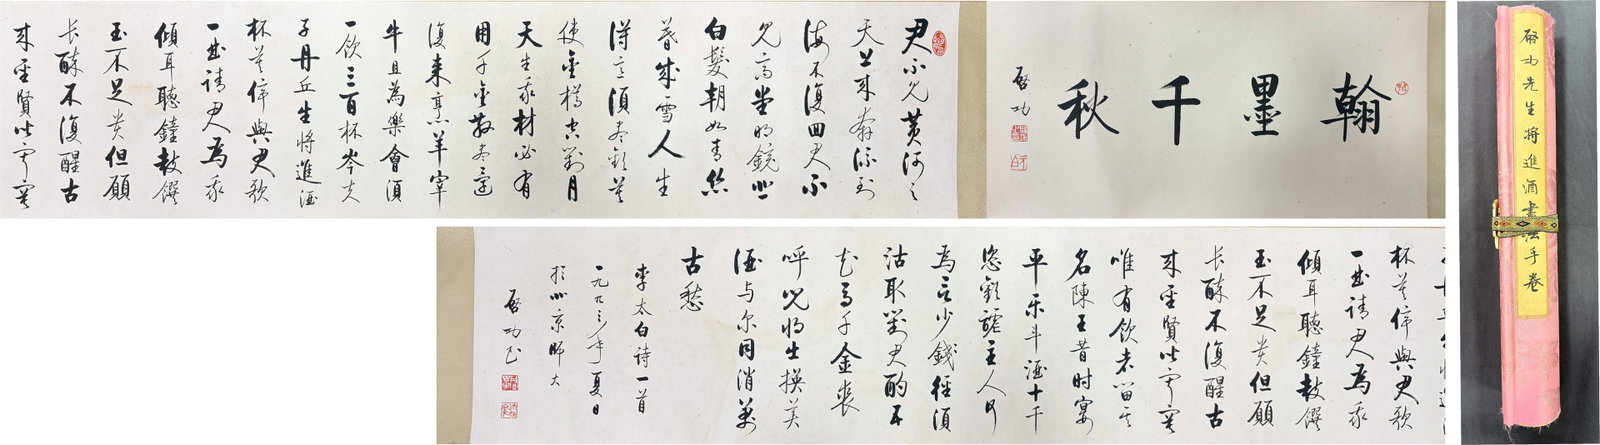 翰墨千秋
啓功
君不见黄河之
天上来奔流到
海不復回君不
见高堂明鏡悲
白髮朝如青絲
暮成雪人生
得意須尽歡莫
使金樽空對月
天生我材必有
用千金散尽還
復来烹羊宰
牛且為樂會須
一飲三百杯岑夫
子丹丘生將進酒
杯莫停與君歌
一曲請君為我
傾耳聽鐘鼓饌
玉不足贵但願
长醉不復醒古
来聖賢皆寂寞
杯莫停與君歌
一曲請君為我
傾耳聽鐘鼓饌
玉不足贵但願
长醉不復醒古
来聖賢皆寂寞
唯有飲者留其
名陳王昔時宴
平乐斗酒十千
恣歡謔主人何
為言少錢徑須
沽取對君酌五
花马千金裘
呼兒将出換美
酒与尔同消萬
古愁
李太白诗一首
一九九三年夏日
於北京師大
啓功书
啓功先生將進酒書法手卷